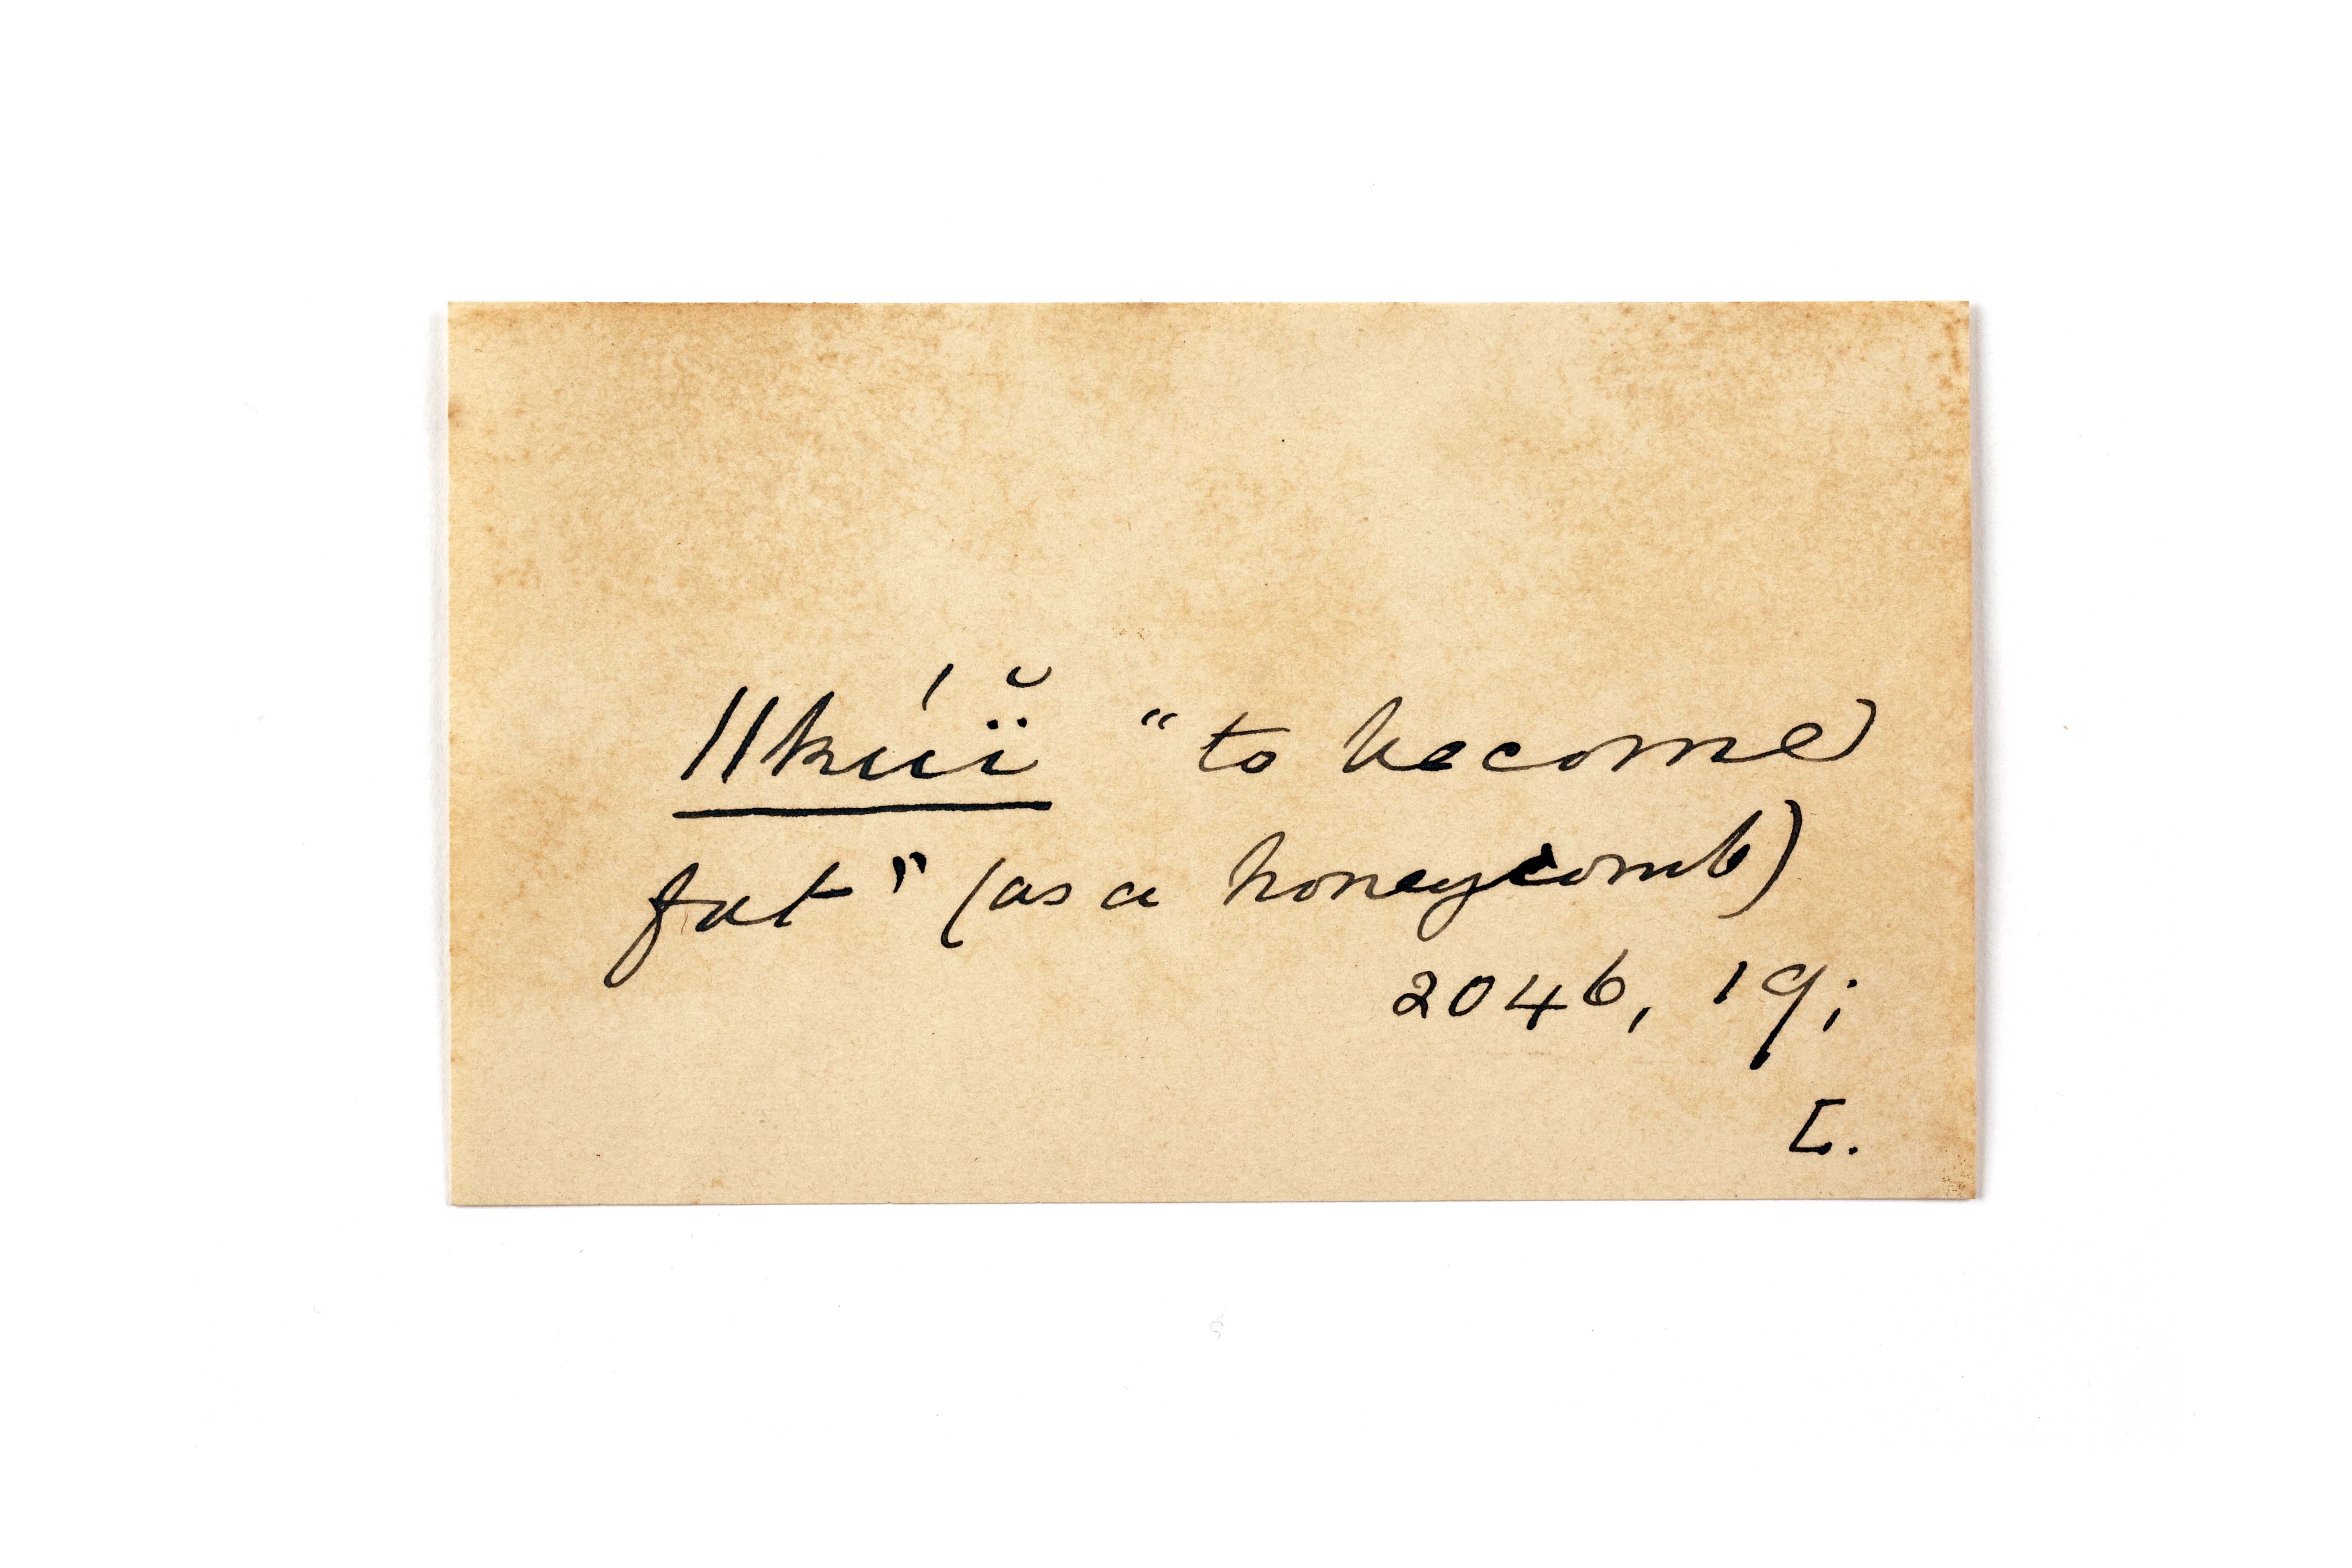 ǁkúï̆ “to become
fat” (as a honeycomb)
2046, 19;
L.